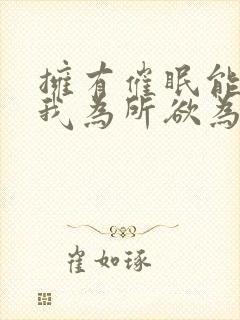 擁有催眠能
我為所欲為
崔如琢